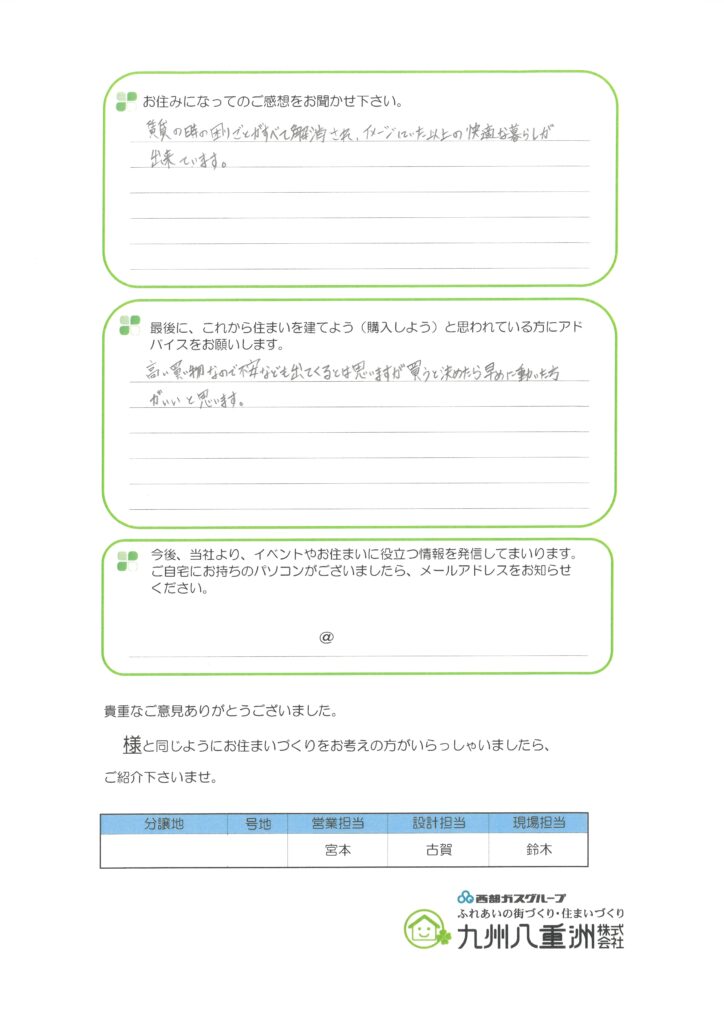 お住みになってのご感想をお聞かせ下さい。
賃貸の時の困りごとがすべて解消され、イメージしていた以上の快適な暮らしが
出来ています。
最後に、これから住まいを建てよう（購入しよう）と思われている方にアド
バイスをお願いします。
高い買い物なので不安なども出てくるとは思いますが買うと決めたら早めに動いた方
がいいと思います。
今後、当社より、イベントやお住まいに役立つ情報を発信してまいります。
ご自宅にお持ちのパソコンがございましたら、メールアドレスをお知らせ
ください。
@
貴重なご意見ありがとうございました。
様と同じようにお住まいづくりをお考えの方がいらっしゃいましたら、
ご紹介下さいませ。
分譲地 号地 営業担当 設計担当 現場担当
宮本 古賀 鈴木
西部ガスグループ
ふれあいの街づくり・住まいづくり
九州八重洲株式会社